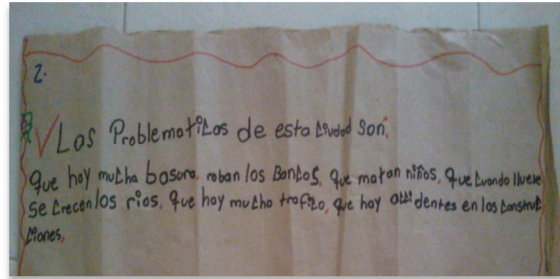 2.
Las Problematicas de esta ciudad son,
Que hay mucha basura, roban los Bancos, que matan niños, que cuando llueve
se crecen los rios, que hay mucho trafico, que hay accidentes en los construc
ciones,